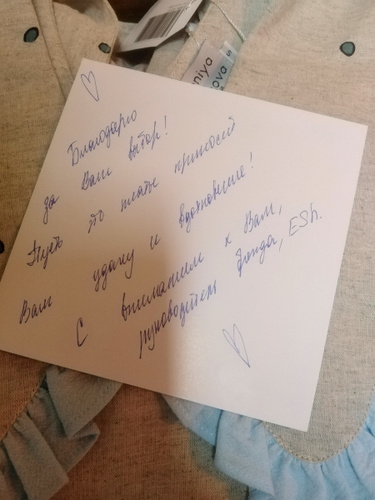 Благодарю
за Ваш выбор!
Пусть это платье приносит
Вам удачу и вдохновение!
С вниманием к Вам,
руководитель фонда, ESh.
niya
ova